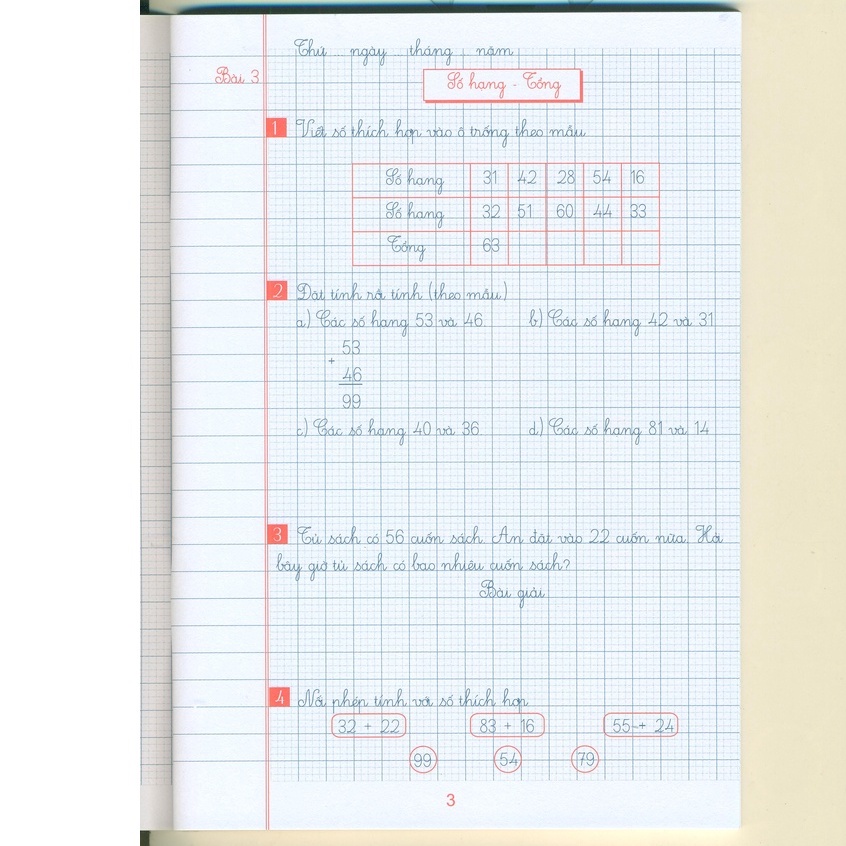 Thứ ngày tháng năm
Bài 3
Số hạng - Tổng
1 Viết số thích hợp vào ô trống theo mẫu
Số hạng 31 42 28 54 16
Số hạng 32 51 60 44 33
Tổng 63
2 Đặt tính rồi tính (theo mẫu)
a) Các số hạng 53 và 46. b) Các số hạng 42 và 31
53
+
46
99
c) Các số hạng 40 và 36 d) Các số hạng 81 và 14
3 Tủ sách có 56 cuốn sách. An đặt vào 22 cuốn nữa. Hỏi
bây giờ tủ sách có bao nhiêu cuốn sách?
Bài giải
4 Nối phép tính với số thích hợp
32 + 22 83 + 16 55 + 24
99 54 79
3